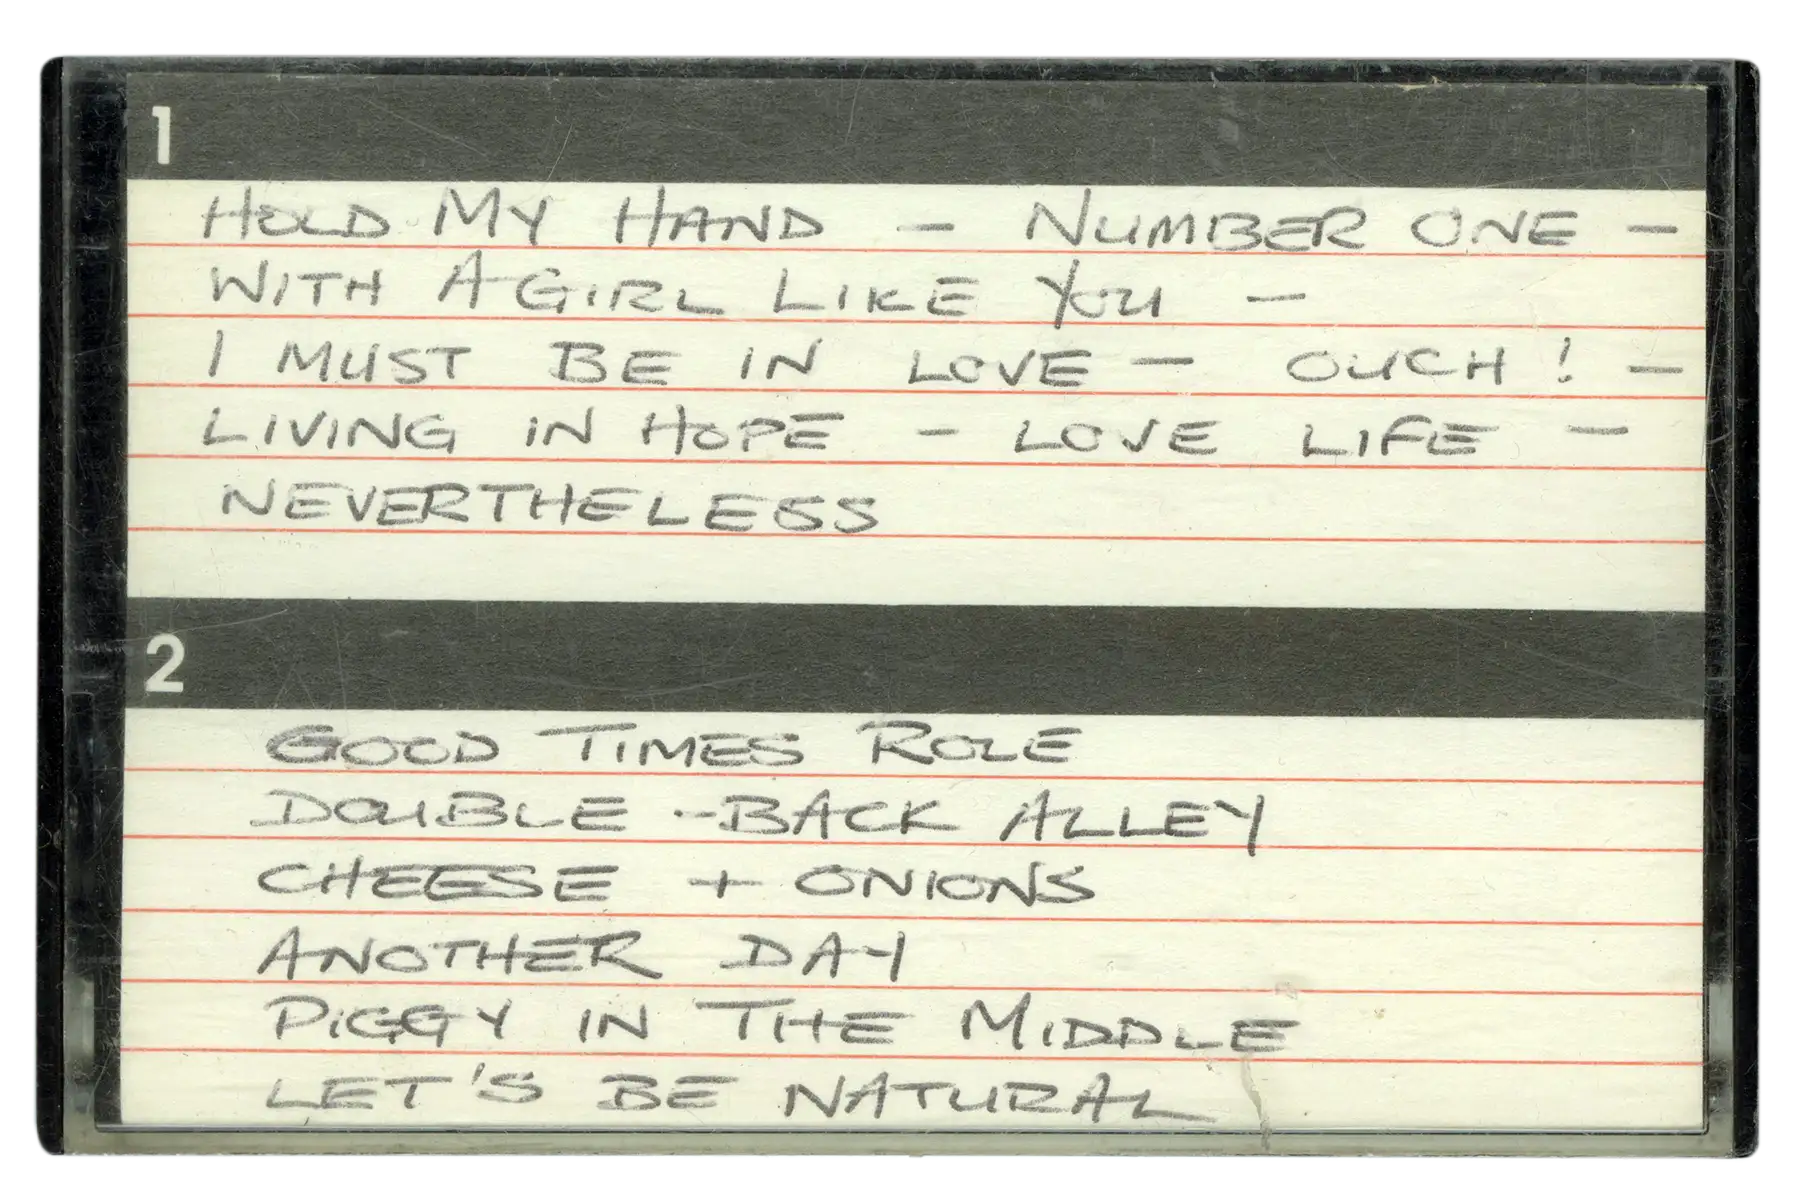 1
HOLD MY HAND – NUMBER ONE –
WITH A GIRL LIKE YOU –
I MUST BE IN LOVE – OUCH! –
LIVING IN HOPE – LOVE LIFE –
NEVERTHELESS
2
GOOD TIMES ROLE
DOUBLE-BACK ALLEY
CHEESE + ONIONS
ANOTHER DAY
PIGGY IN THE MIDDLE
LET'S BE NATURAL